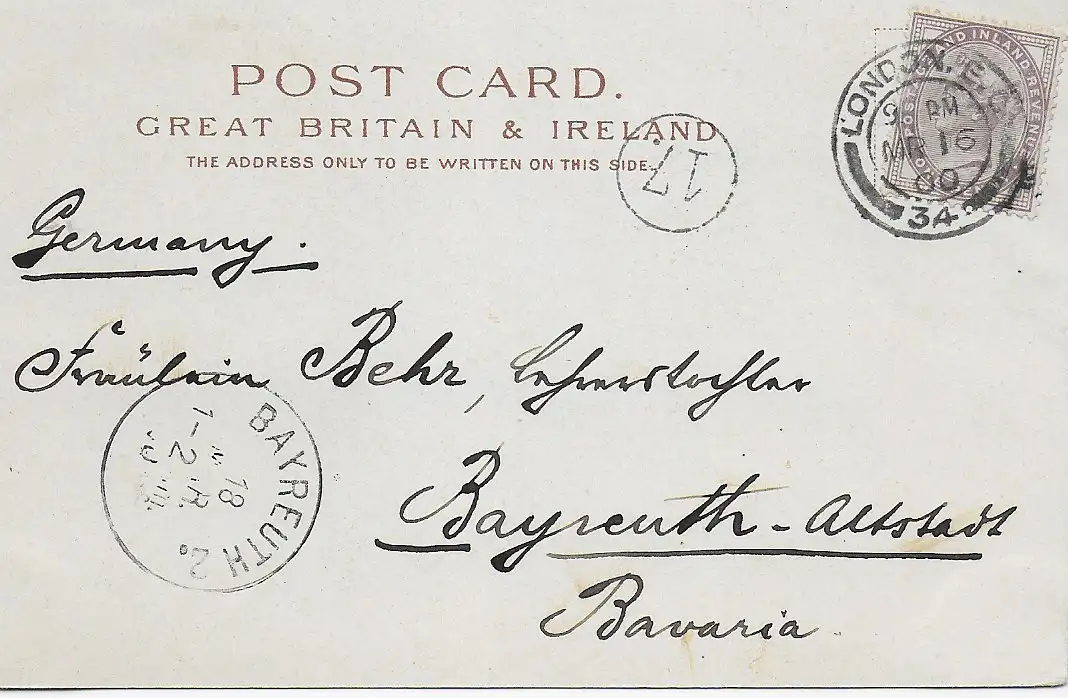 POST CARD.
GREAT BRITAIN & IRELAND
THE ADDRESS ONLY TO BE WRITTEN ON THIS SIDE.
17
POSTAGE AND INLAND REVENUE
LONDON, E.C.
9 PM
MR 16
00
34
Germany.
Fräulein Behr, Lehrerstochter
Bayreuth-Altstadt
Bavaria.
BAYREUTH 2.
18
1-2